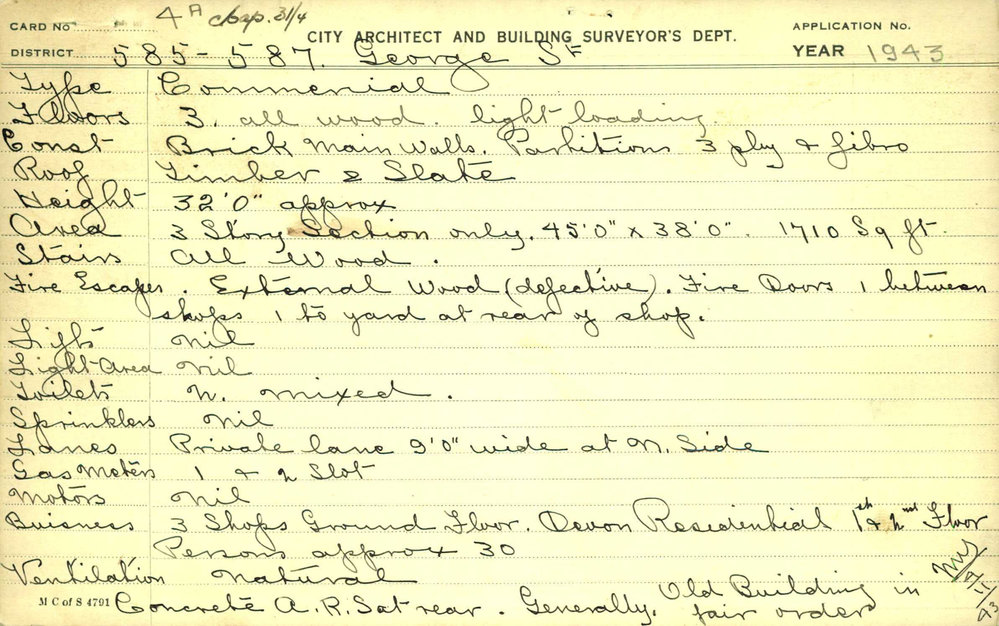 CARD No 4A chap. 31/4
CITY ARCHITECT AND BUILDING SURVEYOR'S DEPT.
APPLICATION No.
DISTRICT 585-587. George St
YEAR 1943
Type Commercial
Floors 3. all wood. light loading.
Const Brick Main Walls. Partitions 3 ply & fibro
Roof Timber & Slate
Height 32'0" approx
Area 3 Story Section only. 45'0" x 38'0". 1710 Sq ft.
Stairs All Wood.
Fire Escapes. External Wood (defective). Fire Doors 1 between
shops 1 to yard at rear of shop.
Lifts Nil
Light Area Nil
Toilets 2. mixed.
Sprinklers Nil
Lanes Private lane 9'0" wide at N. Side
Gas Meters 1 & 2 Slot
Motors Nil
Buisness 3 Shops Ground Floor. Devon Residential 1st & 2nd Floor
Persons approx 30
Ventilation Natural
M C of S 4791 Concrete A.R.S at rear. Generally. Old Building in
fair order
/11/43